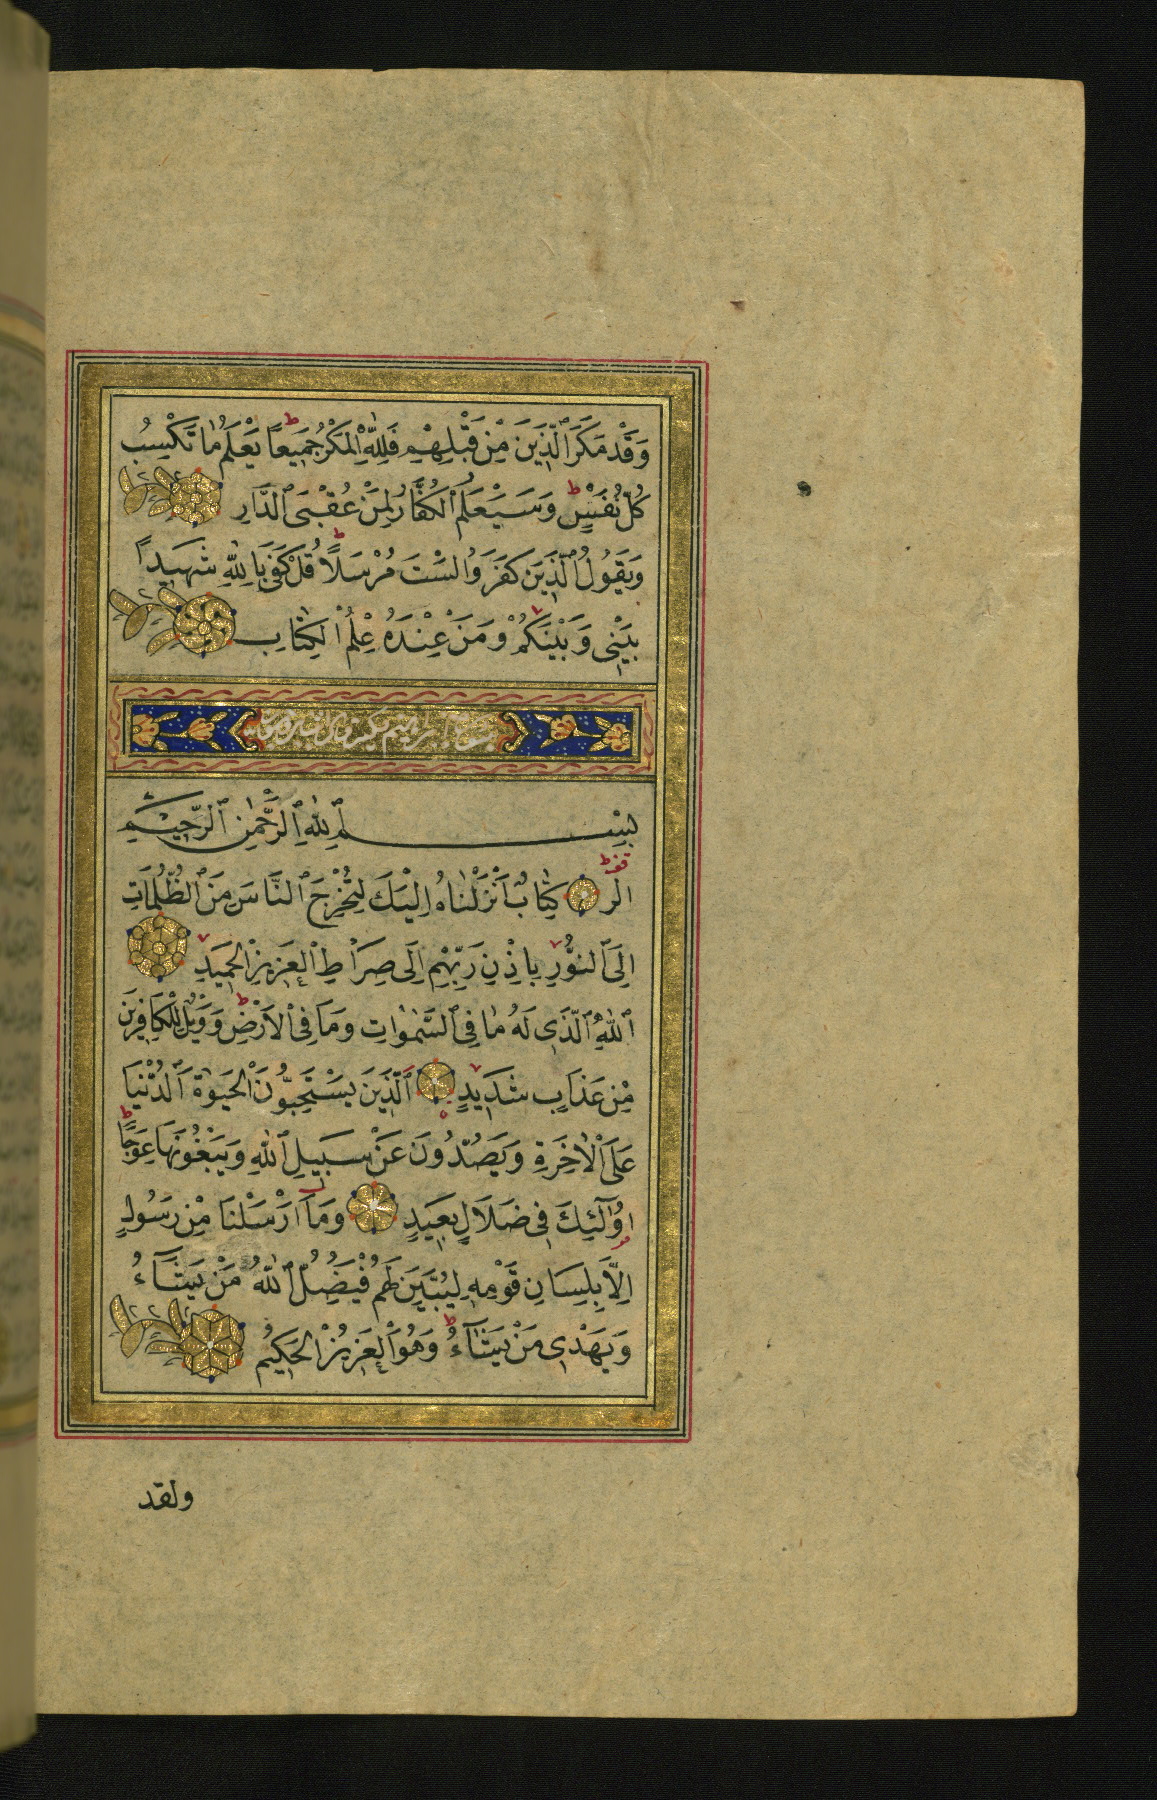 وَقَدْ مَكَرَ ٱلَّذِينَ مِنْ قَبْلِهِمْ فَلِلّٰهِ ٱلْمَكْرُ جَمِيعًا ط يَعْلَمُ مَا تَكْسِبُ
كُلُّ نَفْسٍ ط وَسَيَعْلَمُ ٱلْكُفَّارُ لِمَنْ عُقْبَى ٱلدَّارِ
وَيَقُولُ ٱلَّذِينَ كَفَرُوا لَسْتَ مُرْسَلًا ط قُلْ كَفٰى بِاللّٰهِ شَهِيدًا
بَيْنِى وَبَيْنَكُمْ لا وَمَنْ عِنْدَهُ عِلْمُ ٱلْكِتَابِ
بِسْمِ ٱللّٰهِ ٱلرَّحْمٰنِ ٱلرَّحِيمِ
الٓرٰ كِتَابٌ أَنْزَلْنَاهُ اِلَيْكَ لِتُخْرِجَ ٱلنَّاسَ مِنَ ٱلظُّلُمَاتِ
اِلَى ٱلنُّورِ بِاِذْنِ رَبِّهِمْ اِلَى صِرَاطِ ٱلْعَزِيزِ ٱلْحَمِيدِ
ٱللّٰهِ ٱلَّذِى لَهُ مَا فِى ٱلسَّمٰوَاتِ وَمَا فِى ٱلْاَرْضِ ط وَوَيْلٌ لِلْكَافِرِينَ
مِنْ عَذَابٍ شَدِيدٍ ٱلَّذِينَ يَسْتَحِبُّونَ ٱلْحَيٰوةَ ٱلدُّنْيَا
عَلَى ٱلْاٰخِرَةِ وَيَصُدُّونَ عَنْ سَبِيلِ ٱللّٰهِ وَيَبْغُونَهَا عِوَجًا ط
اُولٰٓئِكَ فِى ضَلَالٍ بَعِيدٍ وَمَا اَرْسَلْنَا مِنْ رَسُولٍ
اِلَّا بِلِسَانِ قَوْمِهِ لِيُبَيِّنَ لَهُمْ فَيُضِلُّ ٱللّٰهُ مَنْ يَشَآءُ
وَيَهْدِى مَنْ يَشَآءُ ط وَهُوَ ٱلْعَزِيزُ ٱلْحَكِيمُ
ولقد